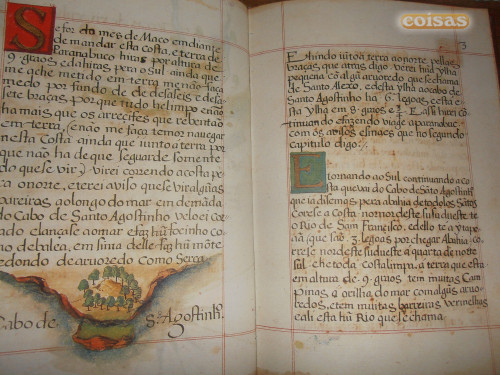 Se for do mes de Março em diante
de mandar esta costa, e terra de
Paranabuco hiras por altura de
9. graos e dahi iras p.ª o Sul ainda que
me hé metido em terra não faça
medo por fundo de dezaseis e desa
sete braças, por que tudo he limpo e não
ha mais que os arrecifes que rebentão
em terra, se não me faça temor navegar
nesta Costa ainda que junto a terra por
que não ha de que se guarde somente
do que se vir) virei correndo a costa p
era o norte, e terei aviso que se vir alguas
bareiras ao longo do mar em demãda
do Cabo de Santo Agostinho velo ei cor
tado e lança se ao mar e faz hũ focinho como
de balea, em sima delle faz hũ môte
redondo de arvoredo como Serra.
Cabo de Sto Agostinh.
coisas
3
E hindo
terra o norte pellas
braças, que
digo verei hũa ylha
pequena cõ algũ arvoredo que se chama
de Santo Aleixo, e desta ylha ao cabo de
Santo Agostinho ha 6. legoas, e está es
ta ylha em 8. graos e
E assi hirei cõ
tinuando e fazendo viage a paranabuco
com os avisos e sinaes que no segundo
capitulo digo.
E tornando ao Sul continuando a co
sta que vai do Cabo de Santo Agostinho
que ia dissemos, pera a bahia de todolos Santos
Corese a Costa nornordeste susudueste, te
o Rio de San Francisco, e delle te ytapo
ãa (que são 3. legoas por chegar A bahia) co
rrese nordeste sudueste e quarta de norte
sul e he toda Costa limpa, a terra que esta
em altura de 9. graos, tem muitas Cam
pinas, e orilha do mar com algũs arvo
redos, e tem muitas barreiras vermelhas
e ali esta hũ Rio que se chama